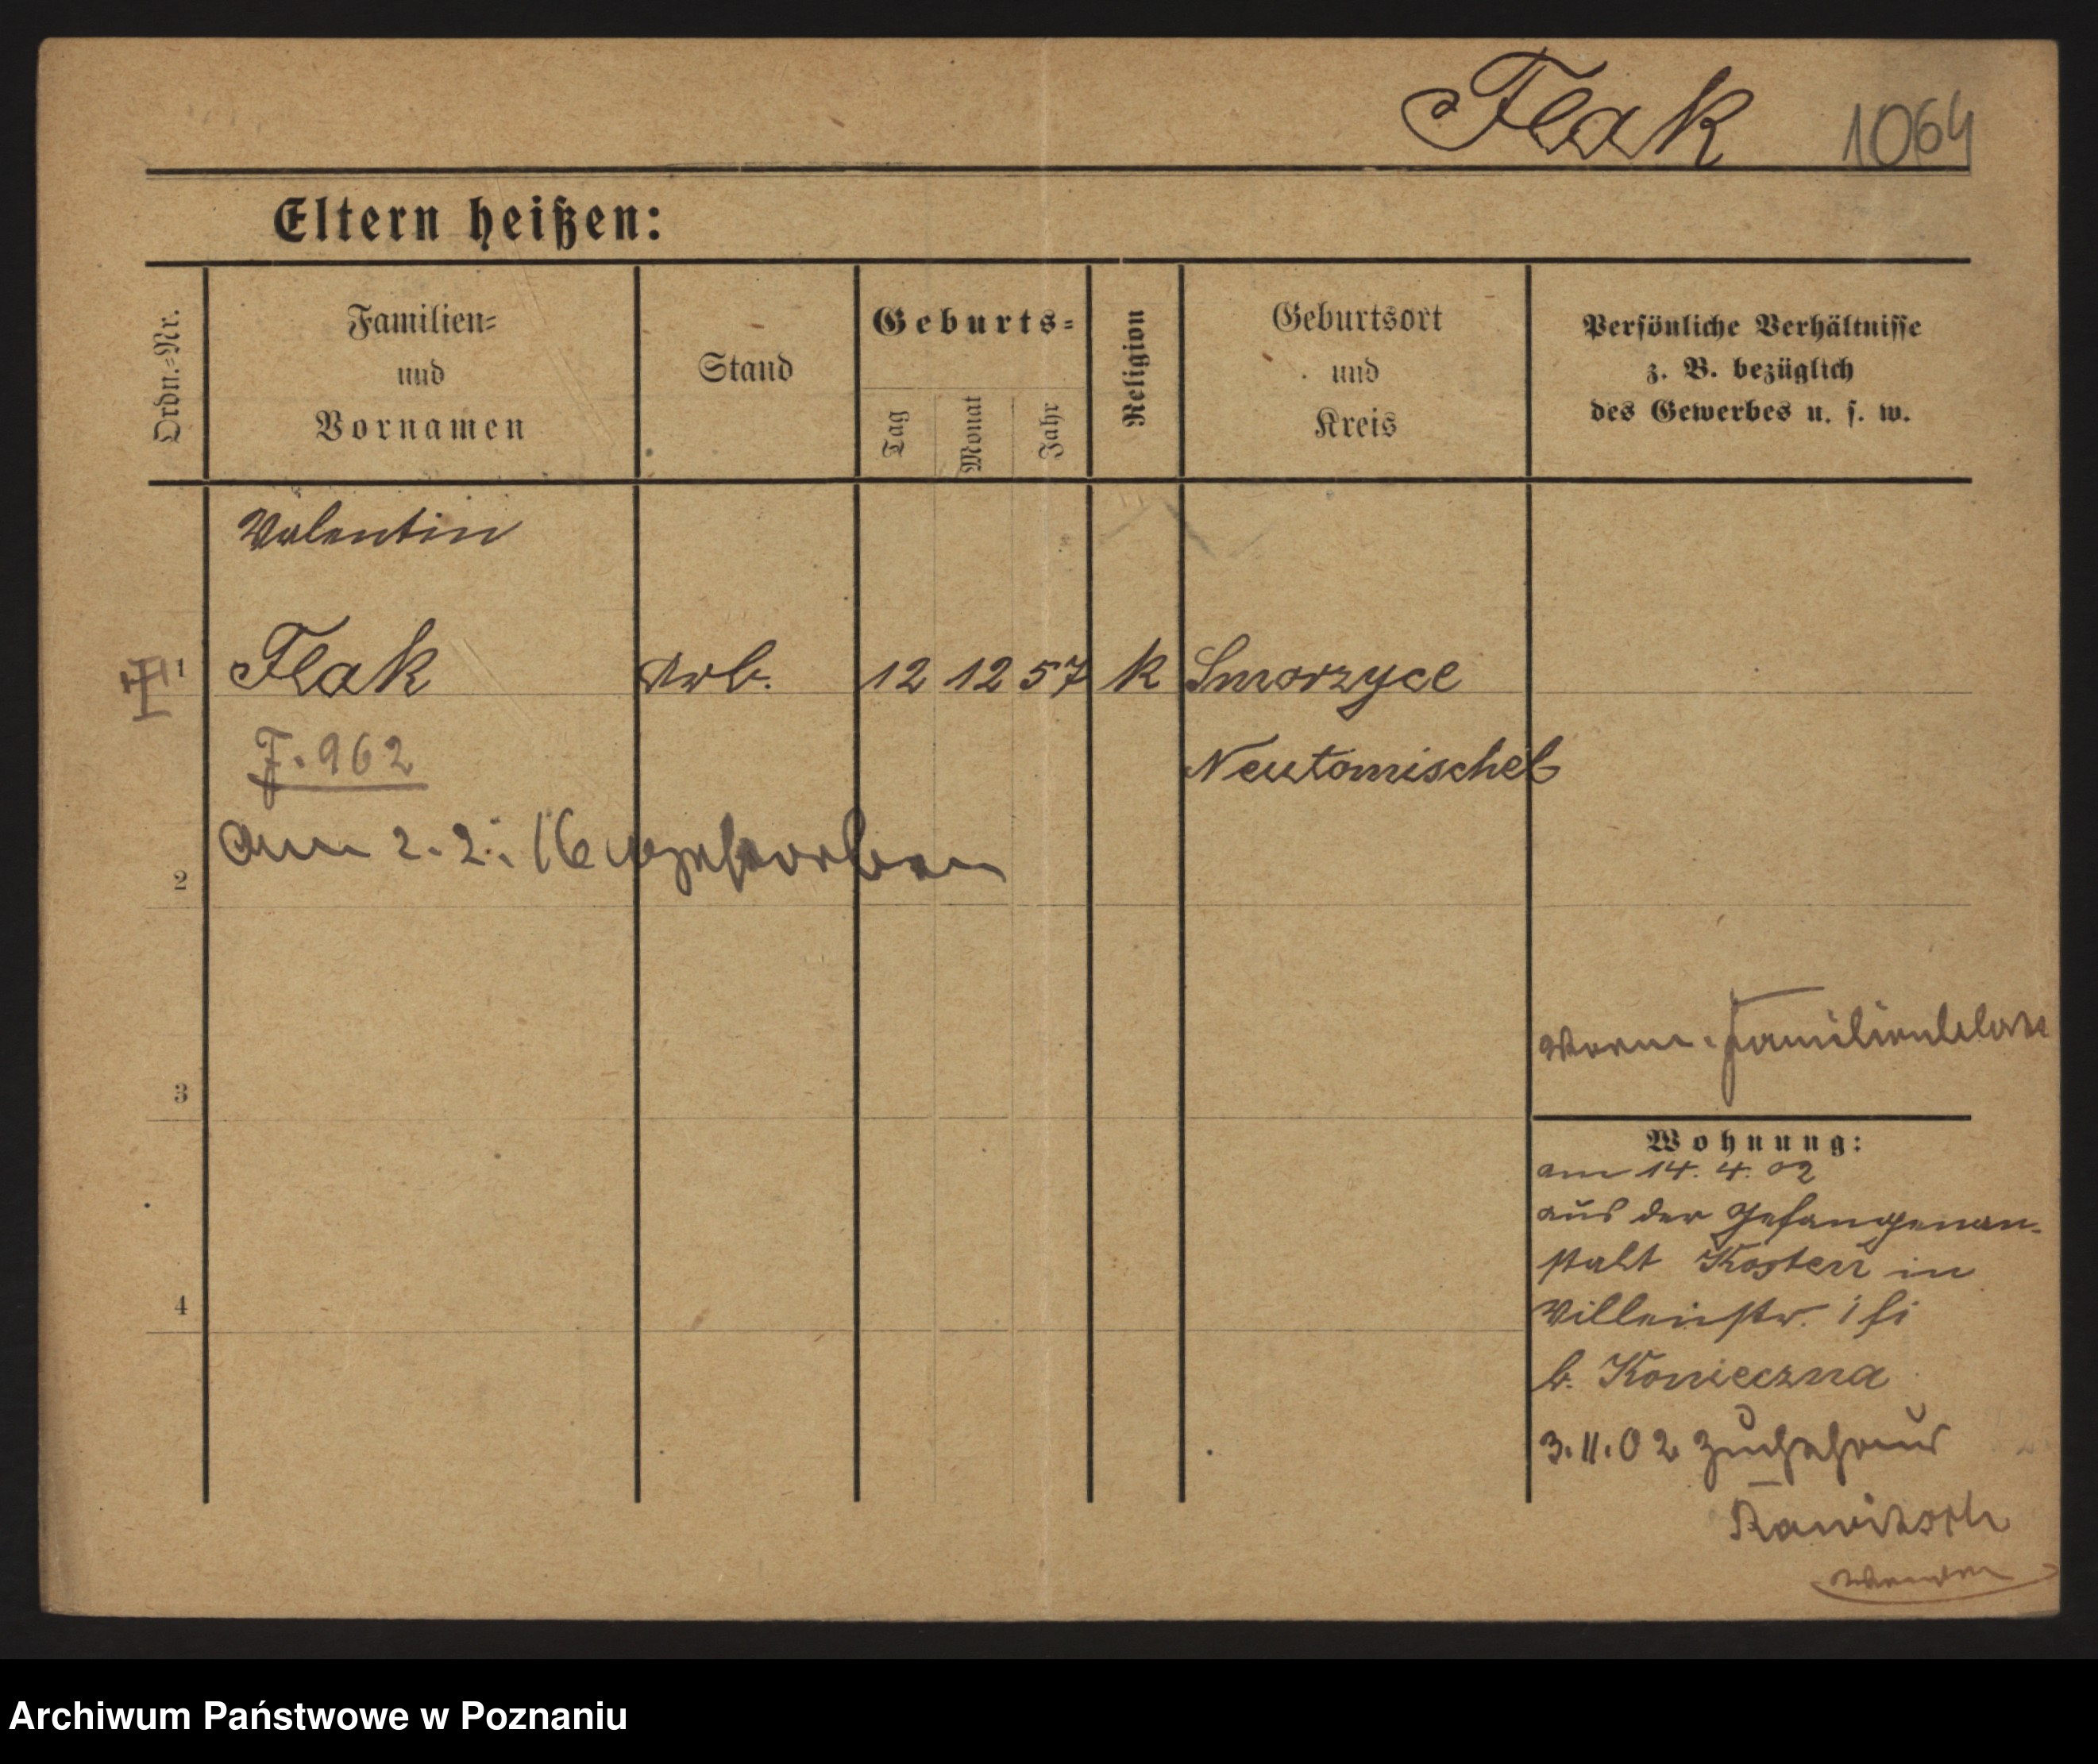 Flak 1064
Eltern heißen:
Ordn.-Nr.
Familien-
und
Vornamen
Stand
Geburts-
Tag
Monat
Jahr
Religion
Geburtsort
und
Kreis
Persönliche Verhältnisse
z. B. bezüglich
des Gewerbes u. s. w.
Valentin
1 Flak Arb. 12 12 57 k Smorzyce
F. 962
Neutomischel
am 2.2. 16 verstorben
2
Familienblatt
3
Wohnung:
am 14. 4. 02
aus der Gefangenan-
stalt Kosten in
4
Villenstr.
b. Konieczna
3.11.02 Zuchthaus
Rawitsch
wenden
Archiwum Państwowe w Poznaniu